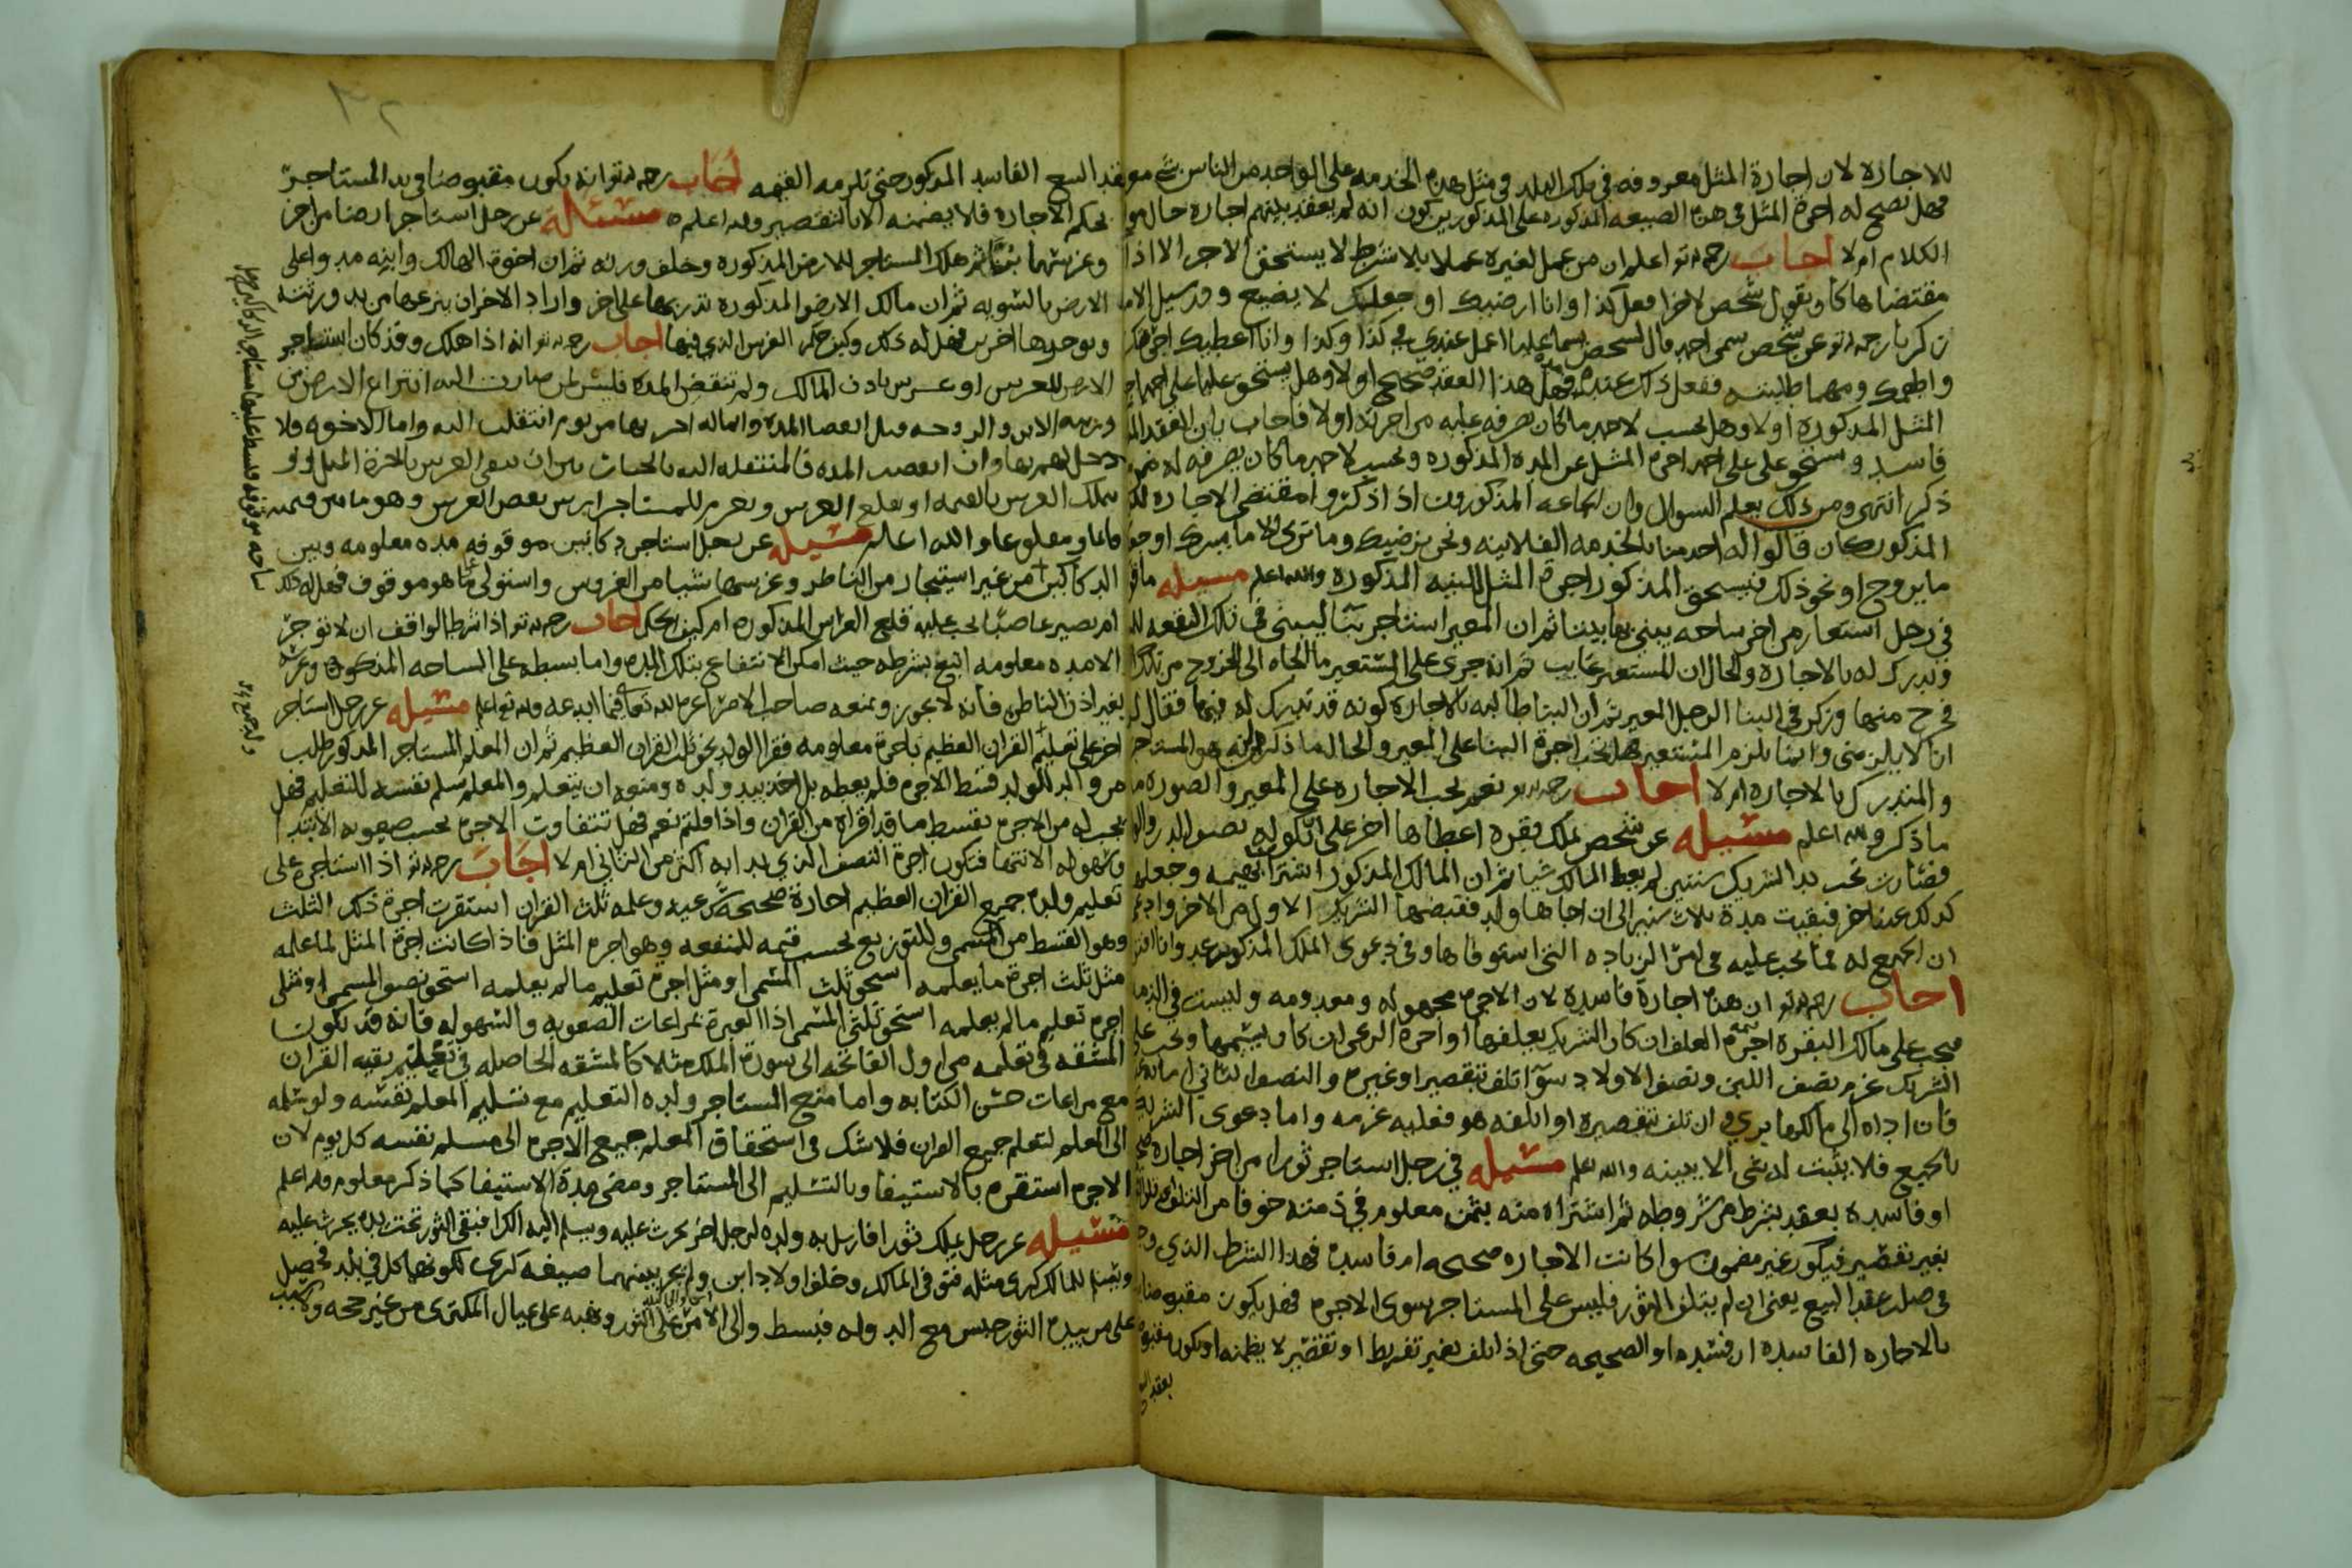 للاجاره لان اجارة المثل معروفه في تلك البلد في مثل هذه الخدمه على الواحد من الناس
فهل تصح له اجرة المثل في هذه الصيغه المذكوره على المذكورين كون انه لم يعقد بينهم اجارة حال
الكلام ام لا اجاب رحمه الله تعالى اعلم ان من عمل لغيره عملا بلا شرط لا يستحق الاجر الا اذا
مقتضاها كأن يقول شخص لاخر افعل كذا وانا ارضيك او جعلتك لا يضيع
عن شخص سمى احمد قال لشخص يسما عليا اعمل عندي في كذا وكذا وانا اعطيك
واطعمك ومهما طلبته ففعل ذلك عنده فهل هذا العقد صحيح او لا وهل يستحق عليا على احمد
المثل المذكورة او لا وهل يحسب لاحمد ما كان صرفه عليه من اجرته او لا فاجاب بان العقد
فاسد ويستحق على على احمد اجرة المثل عن المده المذكوره ويحسب لاحمد ما كان يصرفه له
ذكر انتهى ومن ذلك يعلم السوال وان الجماعه المذكورون اذا ذكروا مقتضى الاجاره
المذكور كان قالوا له اخدمنا بالخدمه الفلانيه ونحن نرضيك وما ترى الا ما يسرك او
ما يروح او نحو ذلك فيستحق المذكور اجرة المثل للبنيه المذكوره والله اعلم مسيله
في رجل استعار من اخر ساحه يبني بها بيتا ثم ان المعير استاجر بنّا ليبني في تلك البقعه
ويدرك له بالاجاره والحال ان المستعير غايب ثم انه جرى على المستعير ما الجاه الى الخروج من
فخرج منها وترك في البنا الرجل المعير ثم ان البنا طالبه بالاجاره كونه قد تدرك له فيها فقال
انا لا يلزمني وانما يلزم المستعير فهل تجب اجرة البنا على المعير والحال ما ذكر لانه هو المستاجر
والمتدرك بالاجاره ام لا اجاب رحمه الله نعم تجب الاجاره على المعير والصوره
ما ذكر والله اعلم مسيله عن شخص يملك بقره اعطاها اخر على ان يكون له نصف الدر
فصارت تحت يد الشريك سنتين لم يعط المالك شيا ثم ان المالك المذكور اشترا بهيمه وجعلها
كذلك عند اخر فبقيت مدة ثلاث سنين الى ان اجاها ولد فقبضها الشريك الاول من الاخر وادعى
ان الجميع له فما يجب عليه في لبن الزياده التي استوفاها وفي دعوى الملك المذكور
اجاب رحمه الله ان هذه اجارة فاسدة لان الاجره مجهوله ومعدومه وليست في الذمه
فيجب على مالك البقره اجرة العلف ان كان الشريك يعلفها او اجرة الرعي ان كان يسيمها ويجب على
الشريك غرم نصف اللبن ونصف الاولاد سوا تلف بتقصير او غيره والنصف الثاني امانه
فان اداه الى مالكها بري وان تلف بتقصيره او اتلفه هو فعليه غرمه واما دعوى الشريك
بالجميع فلا يثبت له شي الا ببينه والله اعلم مسيله في رجل استاجر ثورا من اخر اجارة
او فاسده بعقد بشرط من شروطه ثم اشتراه منه بثمن معلوم في ذمته خوفا من التلف
بغير تقصير فيكون غير مضمون سوا كانت الاجاره صحيحه ام فاسده فهذا الشرط الذي
في صلب عقد البيع يعني ان لم يتلف الثور فليس على المستاجر سوى الاجره فهل يكون مقبوضا
بالاجاره الفاسده ان فسده او الصحيحه حتى اذا تلف بغير تفريط او تقصير لا يضمنه او يكون مقبوضا
بعقد البيع
بعقد البيع الفاسد المذكور حتى تلزمه القيمه اجاب رحمه الله تعالى انه يكون مقبوضا في يد المستاجر
بحكم الاجاره فلا يضمنه الا بالتقصير والله اعلم مسئله عن رجل استاجر ارضا من اخر
وغرسها ثم هلك المستاجر للارض المذكوره وخلف ورثه ثم ان اخوة الهالك وابنه مدوا على
الارض بالسويه ثم ان مالك الارض المذكوره ندر بها على اخر واراد الاخر ان ينزعها من يد ورثته
ويوجرها اخر فهل له ذلك وكيف حكم الغرس الذي فيها اجاب رحمه الله انه اذا هلك وقد كان استاجر
الارض للغرس او غرس باذن المالك ولم تنقض المده فليس لمن صارت اليه انتزاع الارض من
ورثته الابن والزوجه قبل انقضا المده وانما له اجرتها من يوم انتقلت اليه واما الاخوه فلا
دخل لهم بها وان انقضت المده فالمنتقله اليه بالخيار بين ان يبقى الغرس باجرة المثل او
يتملك الغرس بالقيمه او يقلع الغرس ويغرم للمستاجر ارش نقص الغرس وهو ما بين قيمته
قايما ومقلوعا والله اعلم مسيله عن رجل استاجر دكانين موقوفه مده معلومه وبين
الدكانين من غير استيجار من الناظر وغرسها شيا من الغروس واستولى على ما هو موقوف فهل له ذلك
ام يصير غاصبا يجب عليه قلع الغراس المذكوره ام كيف الحكم اجاب رحمه الله اذا شرط الواقف ان لا توجر
الا مده معلومه اتبع شرطه حيث امكن الانتفاع بتلك المده واما بسطه على الساحه المذكوره وغرسه
بغير اذن الناظر فانه لا يجوز ويمنعه صاحب الامر اعزه الله تعالى فيما ابدعه والله اعلم مسيله عن رجل استاجر
اخر على تعليم القران العظيم باجرة معلومه فقرا الولد نحو ثلث القران العظيم ثم ان المعلم المستاجر المذكور طلب
من والد الولد قسط الاجره فلم يعطه بل اخذ بيد ولده ومنعه ان يتعلم والمعلم سلم نفسه للتعليم فهل
يجب له من الاجره بقسط ما قد اقراه من القران واذا قلتم نعم فهل تتفاوت الاجره بحسب صعوبه الابتدا
وسهولة الانتها فتكون اجرة النصف الذي بدا به اكثر من الثاني ام لا اجاب رحمه الله اذا استاجره على
تعليم ولده جميع القران العظيم اجارة صحيحة شرعيه وعلمه ثلث القران استقرت اجرة ذلك الثلث
وهو القسط من المسمى وللتوزيع بحسب قيمه المنفعه وهو اجره المثل فاذا كانت اجرة المثل لما علمه
مثل ثلث اجرة ما يعلمه استحق ثلث المسمى او مثل اجرة تعليم ما لم يعلمه استحق نصف المسمى او مثلى
اجرة تعليم ما لم يعلمه استحق ثلثي المسمى اذا العبرة بمراعات الصعوبه والسهوله فانه قد يكون
المشقه في تعلمه من اول الفاتحه الى سورة الملك مثلا كالمشقه الحاصله في تعليم بقيه القران
مع مراعات حسن الكتابه واما منع المستاجر ولده التعليم مع تسليم المعلم نفسه ولو سلمه
الى المعلم لتعلم جميع القران فلا شك في استحقاق المعلم جميع الاجره الى مسلم نفسه كل يوم لان
الاجره استقره بالاستيفا وبالتسليم الى المستاجر ومضى مدة الاستيفا كما ذكر معلوم والله اعلم
مسيله عن رجل يملك ثورا فارسل به ولده لرجل اخر يحرث عليه ويسلم اليه الكرا فبقي الثور تحت يده يحرث عليه
ويسلم للمالك كرى مثله فتوفى المالك وخلف اولاد ابن ولم يجر بينهما صيغه كرى لكونهما كل في بلد فحصل
على من بيده الثور حبس مع الدوله فبسط والى الامر على الثور وهبه على عيال المكترى من غير حجه
ساحه موقوفه فبسط عليها مستاجر الدكاكين